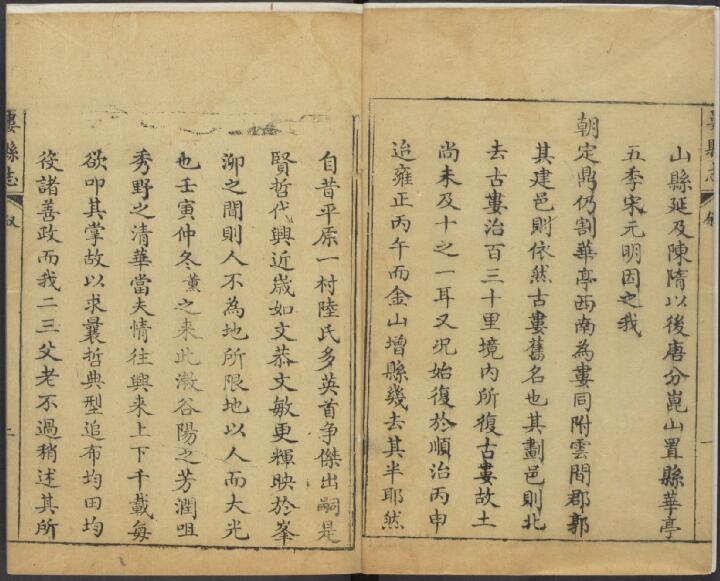 山縣延及陳隋以後唐分崑山置縣華亭
五季宋元明因之我
朝定鼎仍割華亭西南為婁同附雲間郡郭
其建邑則依然古婁舊名也其劃邑則北
去古婁治百三十里境內所復古婁故土
尚未及十之一耳又況始復於順治丙申
迨雍正丙午而金山增縣幾去其半耶然
婁縣志
叙
一
自昔平原一村陸氏多英首爭傑出嗣是
賢哲代興近歲如文恭文敏更輝映於峯
泖之間則人不為地所限地以人而大光
也壬寅仲冬薰之来此漱谷陽之芳潤咀
秀野之清華當夫情往興来上下千載每
欲叩其掌故以求曩哲典型追布均田均
役諸善政而我二三父老不過稍述其所
婁縣志
叙